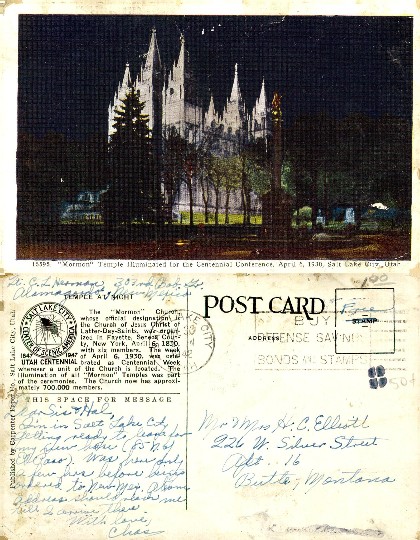 16595 "Mormon" Temple Illuminated for the Centennial Conference, April 6, 1930, Salt Lake City, Utah
TEMPLE AT NIGHT
The "Mormon" Church,
whose official designation is
the Church of Jesus Christ of
Latter-Day-Saints, was organ-
ized in Fayette, Seneca Coun-
ty, New York, April 6, 1830,
with six members. The week
of April 6, 1930, was cele-
brated as Centennial Week
wherever a unit of the Church is located. The
illumination of all "Mormon" Temples was part
of the ceremonies. The Church now has approxi-
mately 700,000 members.
SALT LAKE CITY
CENTER SCENIC AMERICA
1847 1947
UTAH CENTENNIAL
THIS SPACE FOR MESSAGE
Dear Sis & Hal,
Am in Salt Lake City
getting ready to leave for
my new
El Paso). Was
a few hrs before being
ordered to New Mex. Above
address should reach me
till I arrive there.
With love,
Chas
Published by Carpenter Paper Co. Salt Lake City, Utah
POST CARD
ADDRESS
STAMP
Free
LAKE CITY
BUY
DEFENSE SAVINGS
BONDS AND STAMPS
Mr & Mrs H. C. Elliott
226 W. Silver Street
Apt. 16
Butte, Montana